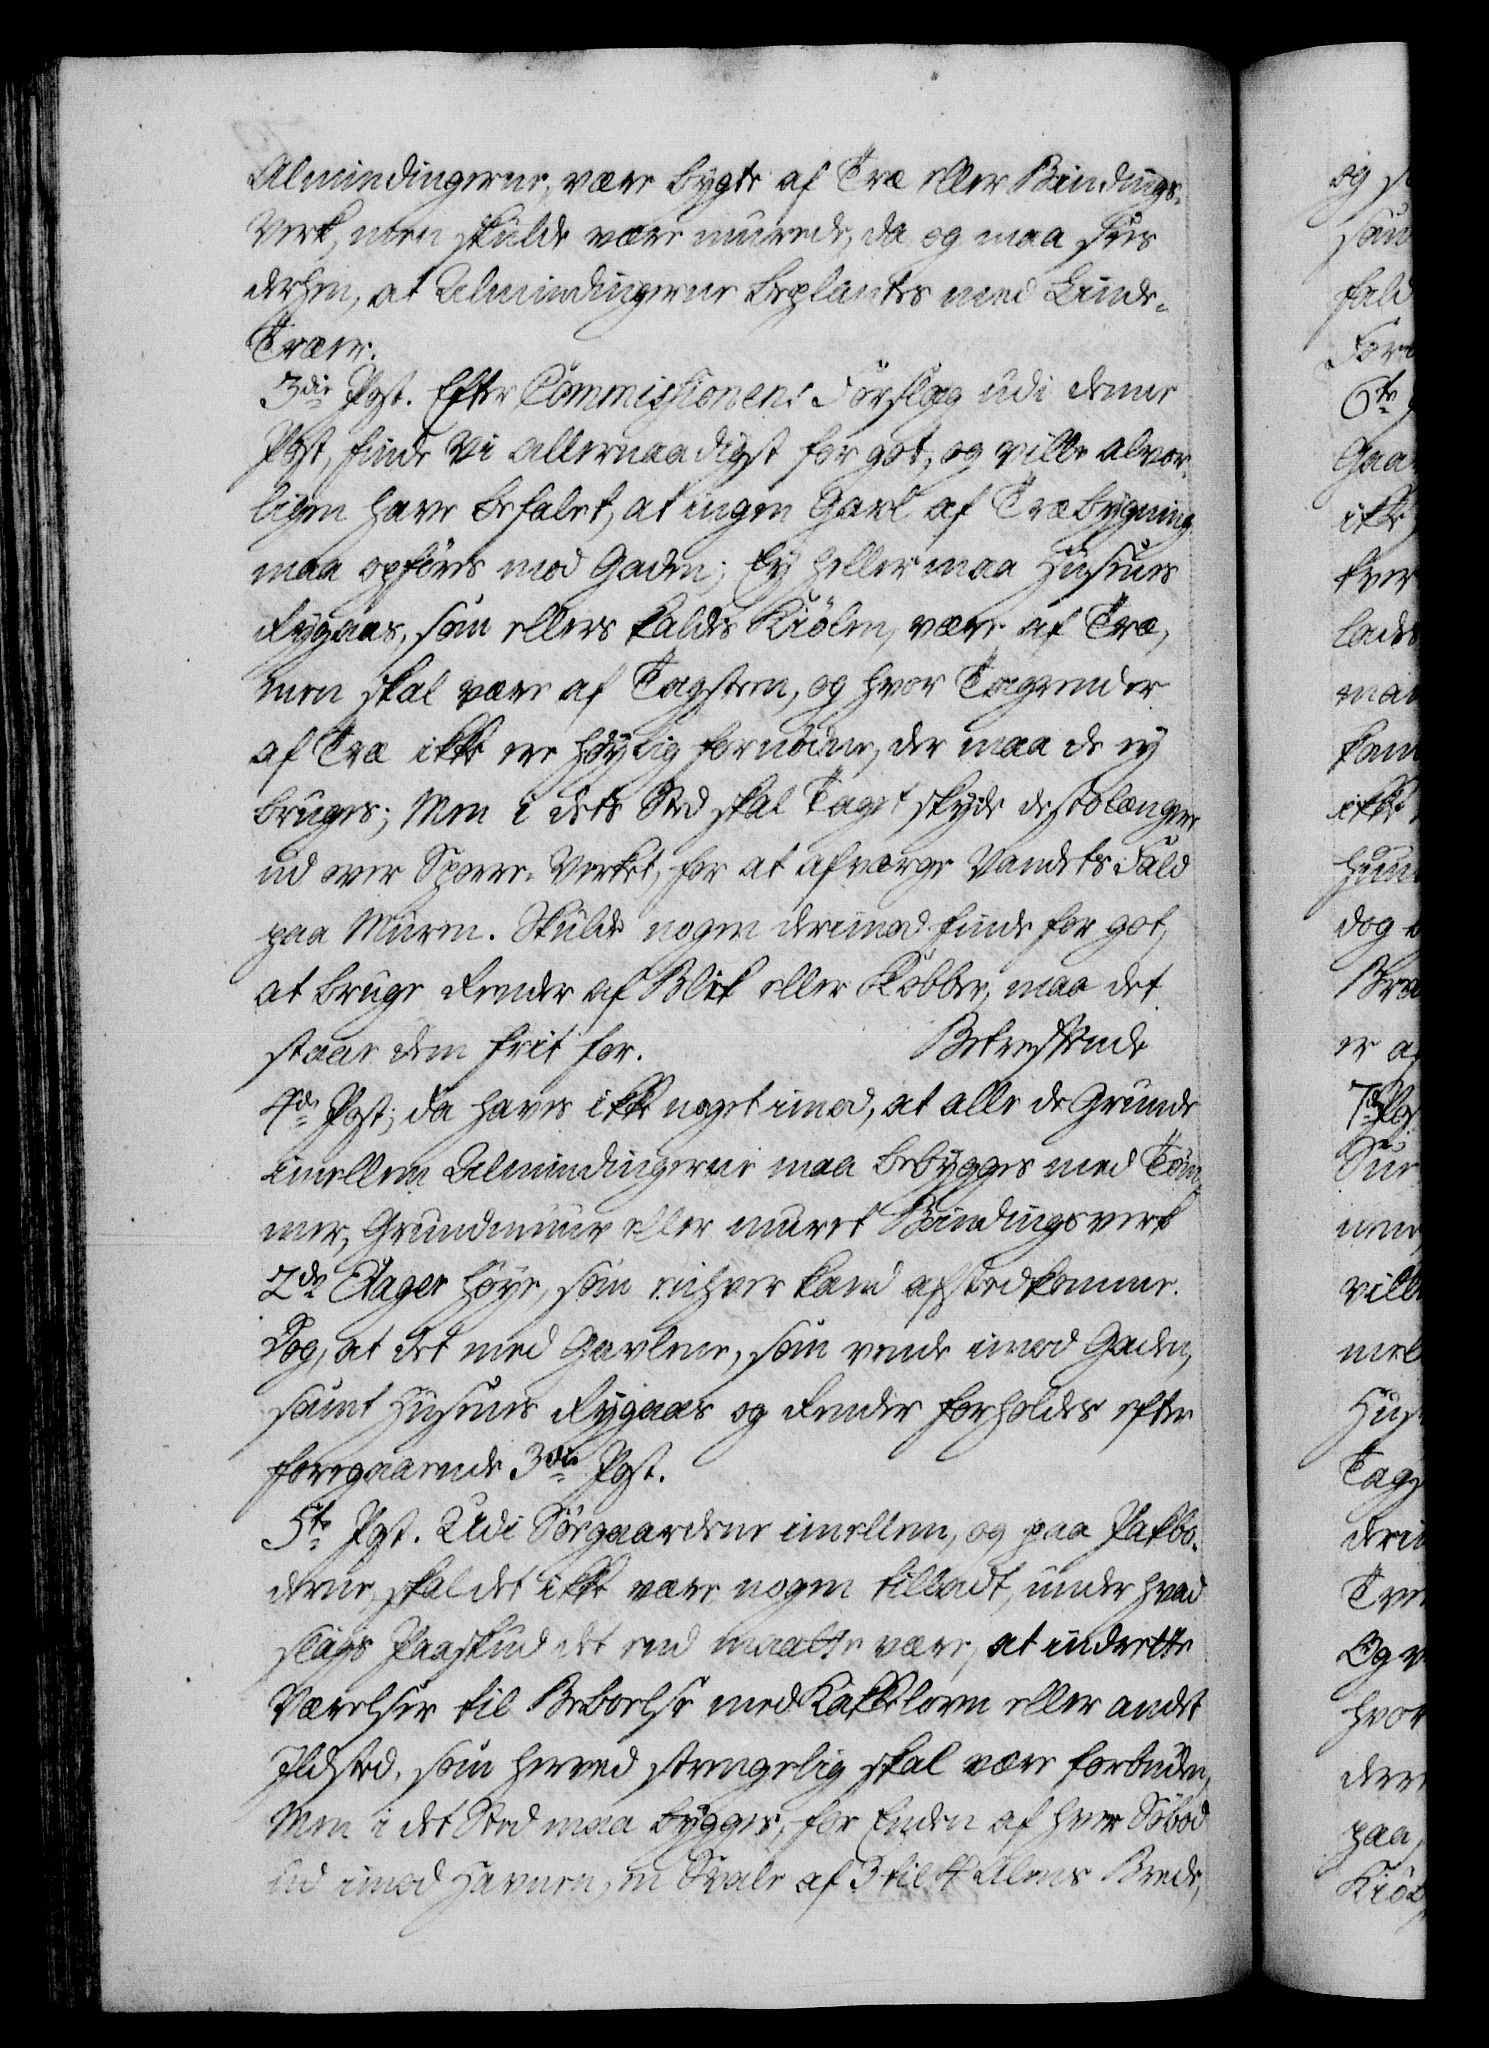 Almindingerne, være bygte af Træ eller Bindings-
Verk, men skulde være murede, da og maa sees
derhen, at Almindingerne beplantes med Linde-
Træer.
3die Post. Efter Commissionens Forslag udi denne
Post, finde Vi allernaadigst for got, og ville alvor-
ligen have befalet, at ingen Gavl af Træbygning
maa opføres mod Gaden; Ey heller maa Husenes
Rygaas, som ellers kaldes Kiölen, være af Træ,
men skal være af Tagsteen, og hvor Tagrender
af Træ ikke ere høylig fornødne, der maa de ey
bruges; Men i dets Sted skal Taget skyde destolængere
ud over Sperre-Verket, for at afværge Vandets Fald
paa Muren. Skulde nogen derimod finde for got,
at bruge Render af Blik eller Kobber, maa det
staae dem frit for. Betreffende
4de Post; da haves ikke noget imod, at alle de Grunde
imellem Almindingerne maa bebygges med Töm-
mer, Grundmuur eller muret Bindingsverk
2de Etager høye, som enhver kand afstedkomme.
Dog, at det med Gavlene, som vende imod Gaden,
samt Husenes Rygaas og Render forholdes efter
foregaaende 3die Post.
5te Post. Udi Söegaardene imellem, og paa Pakbo-
derne, skal det ikke være nogen tilladt, under hvad
slags Paaskud det end maatte være, at indrette
Værelser til Beboelse med Kakkelovn eller andet
Ildsted, som herved strengelig skal være forbuden,
Men i det Sted maa bygges, for Enden af hver Söbod
ud imod Havnen, en Svale af 3 til 4 Alens Brede,
og
6te
Gaa
ikke
lades
ikke
dog
er
7de Post
paa